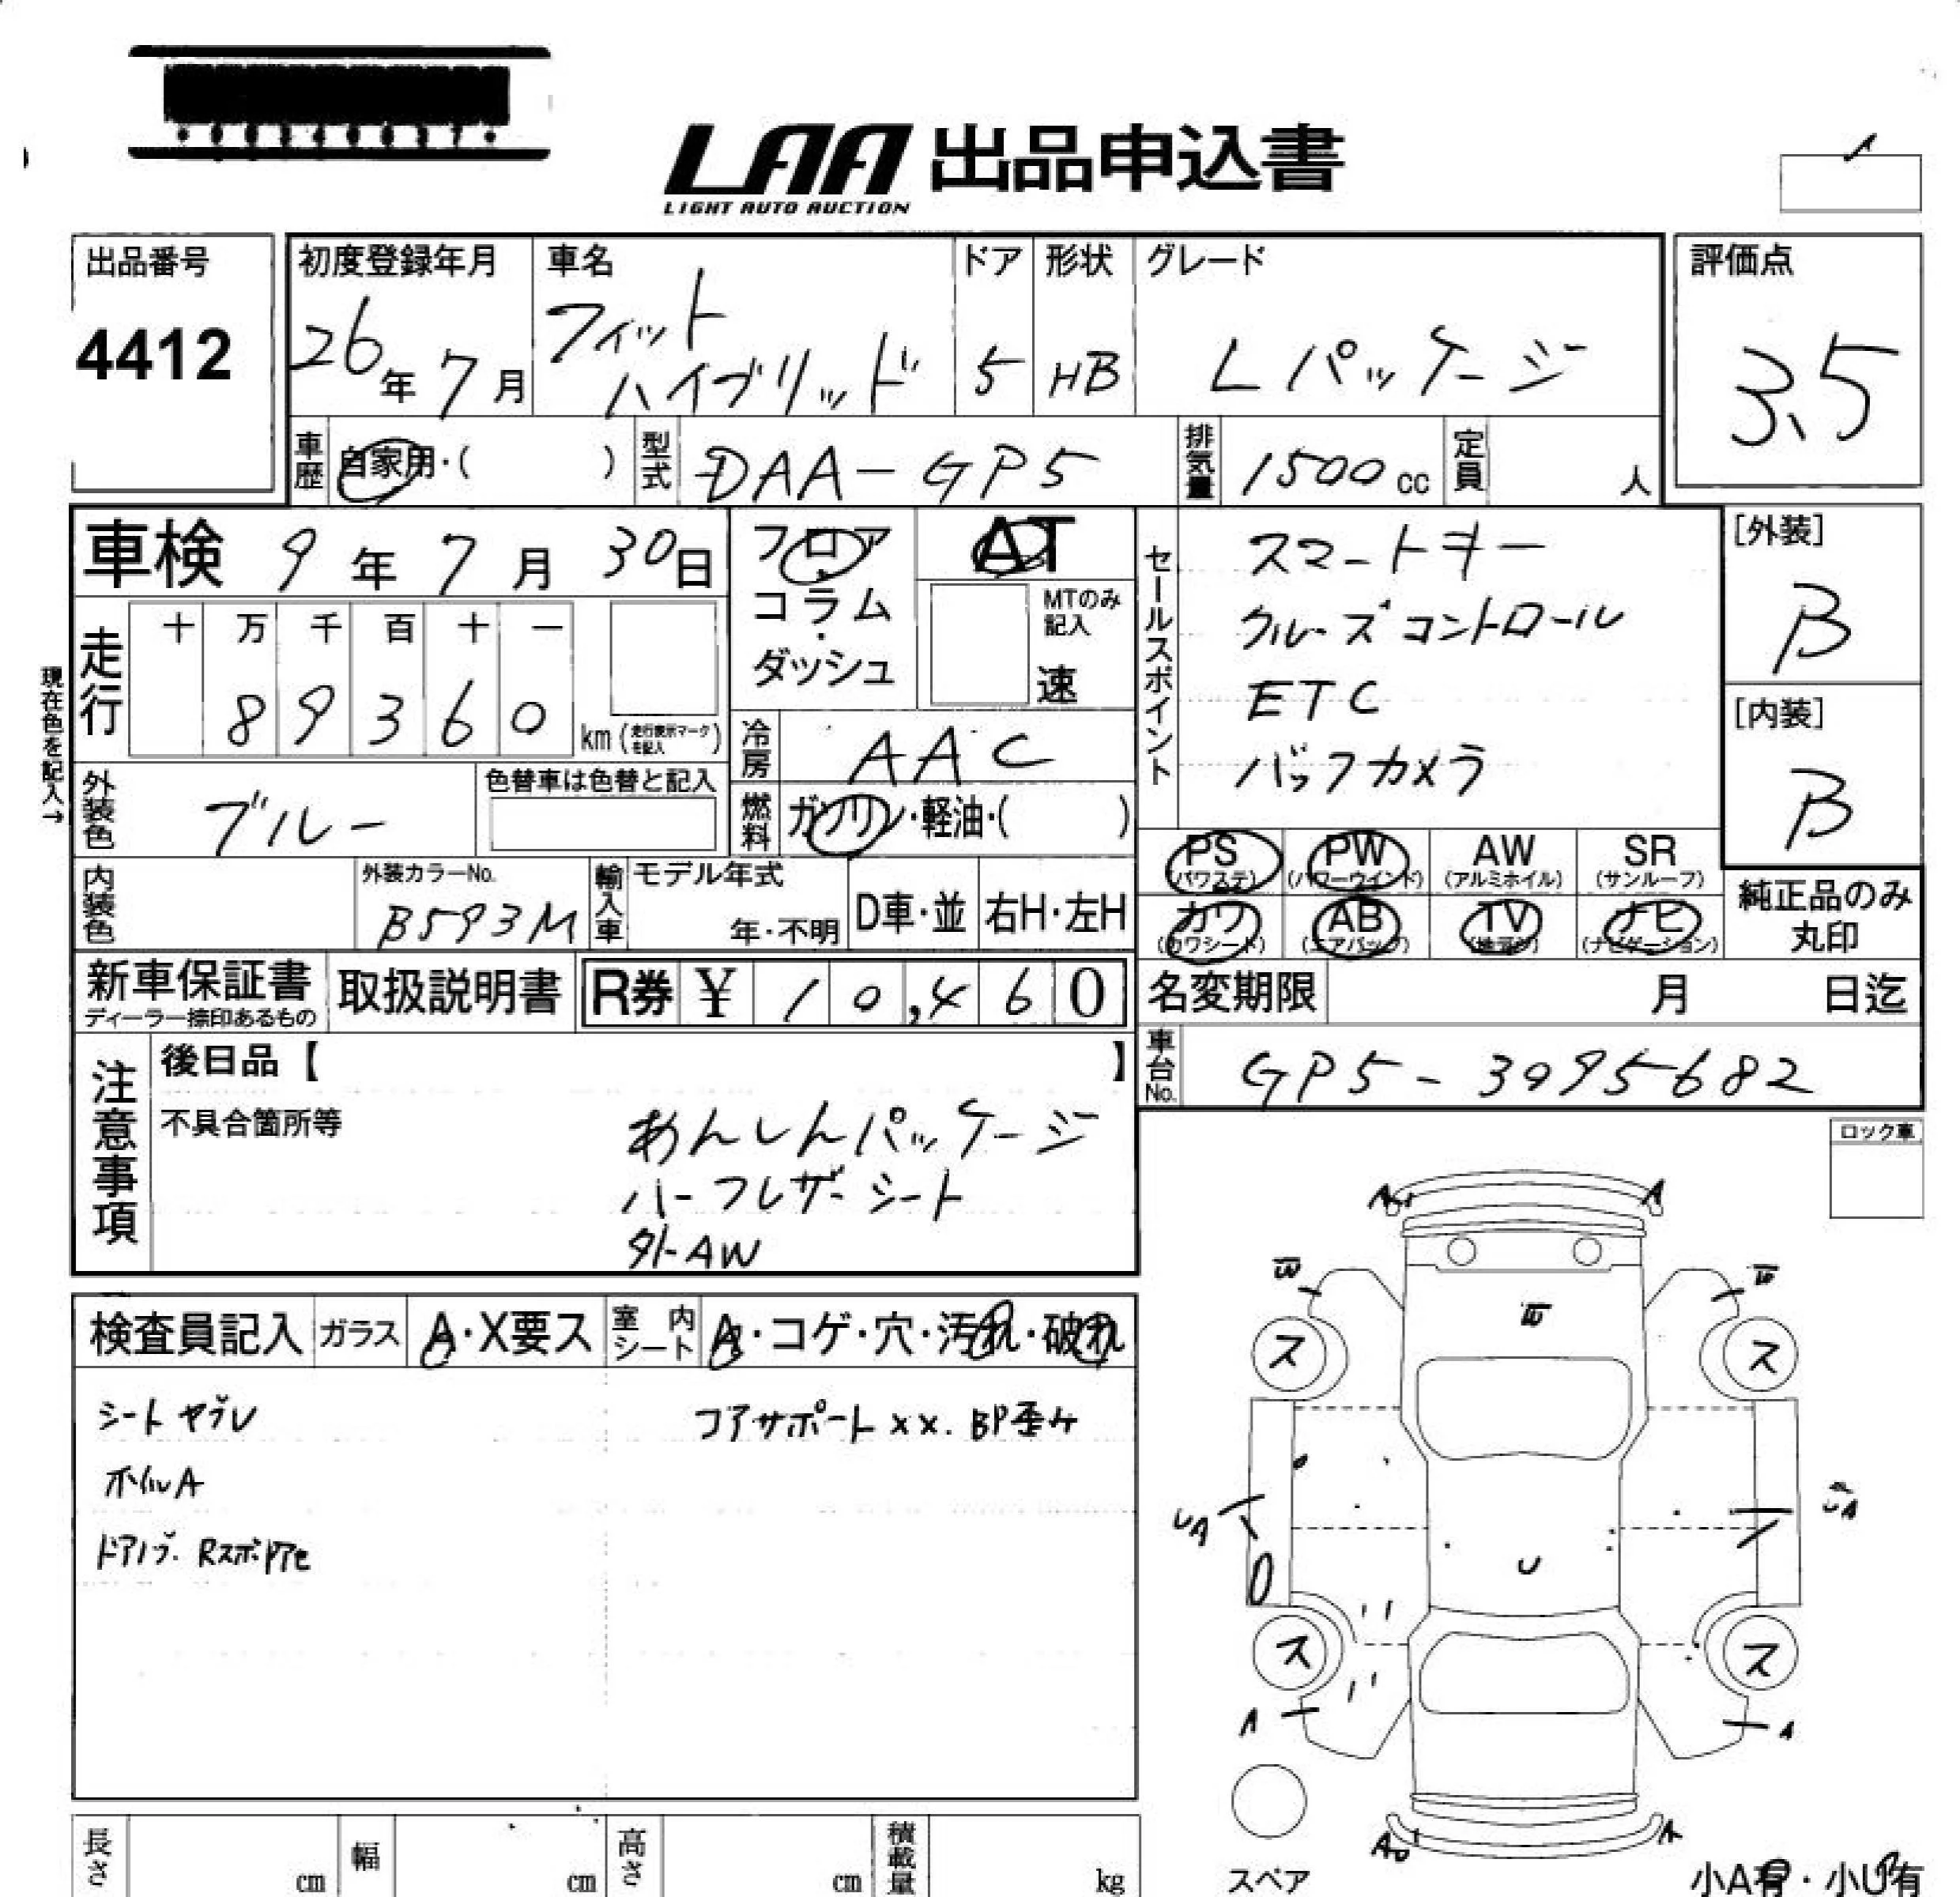 LAA 出品申込書
LIGHT AUTO AUCTION
出品番号
4412
初度登録年月
26年7月
車名
フィット
ハイブリッド
ドア
5
形状
HB
グレード
Lパッケージ
評価点
3.5
車歴
自家用・( )
型式
DAA-GP5
排気量
1500cc
定員
人
車検 9年7月30日
フロア
コラム
・
ダッシュ
AT
MTのみ
記入
速
セールスポイント
スマートキー
クルーズコントロール
ETC
バックカメラ
[外装]
B
[内装]
B
現在色を記入→
走行
十 万 千 百 十 一
8 9 3 6 0
km(走行表示マークを記入)
冷房
AAC
外装色
ブルー
色替車は色替と記入
燃料
ガソリン・軽油・( )
PS
(パワステ)
PW
(パワーウインド)
AW
(アルミホイル)
SR
(サンルーフ)
カワ
(カワシート)
AB
(エアバッグ)
TV
ナビ
(ナビゲーション)
純正品のみ
丸印
内装色
外装カラーNo.
B593M
輸入車
モデル年式
年・不明
D車・並
右H・左H
新車保証書
ディーラー捺印あるもの
取扱説明書
R券 ¥ 10,460
名変期限
月 日迄
車台No.
GP5-3095682
注意事項
後日品【 】
不具合箇所等
あんしんパッケージ
ハーフレザーシート
外AW
ロック車
検査員記入
ガラス
A・X要ス
室内
シート
A・コゲ・穴・汚れ・破れ
シートヤブレ
コアサポートXX. BP歪ミ
ホイルA
A
A
ス
ス
U
ス
ス
A
A
スペア
小A有・小U有
長さ
cm
幅
cm
高さ
cm
積載量
kg